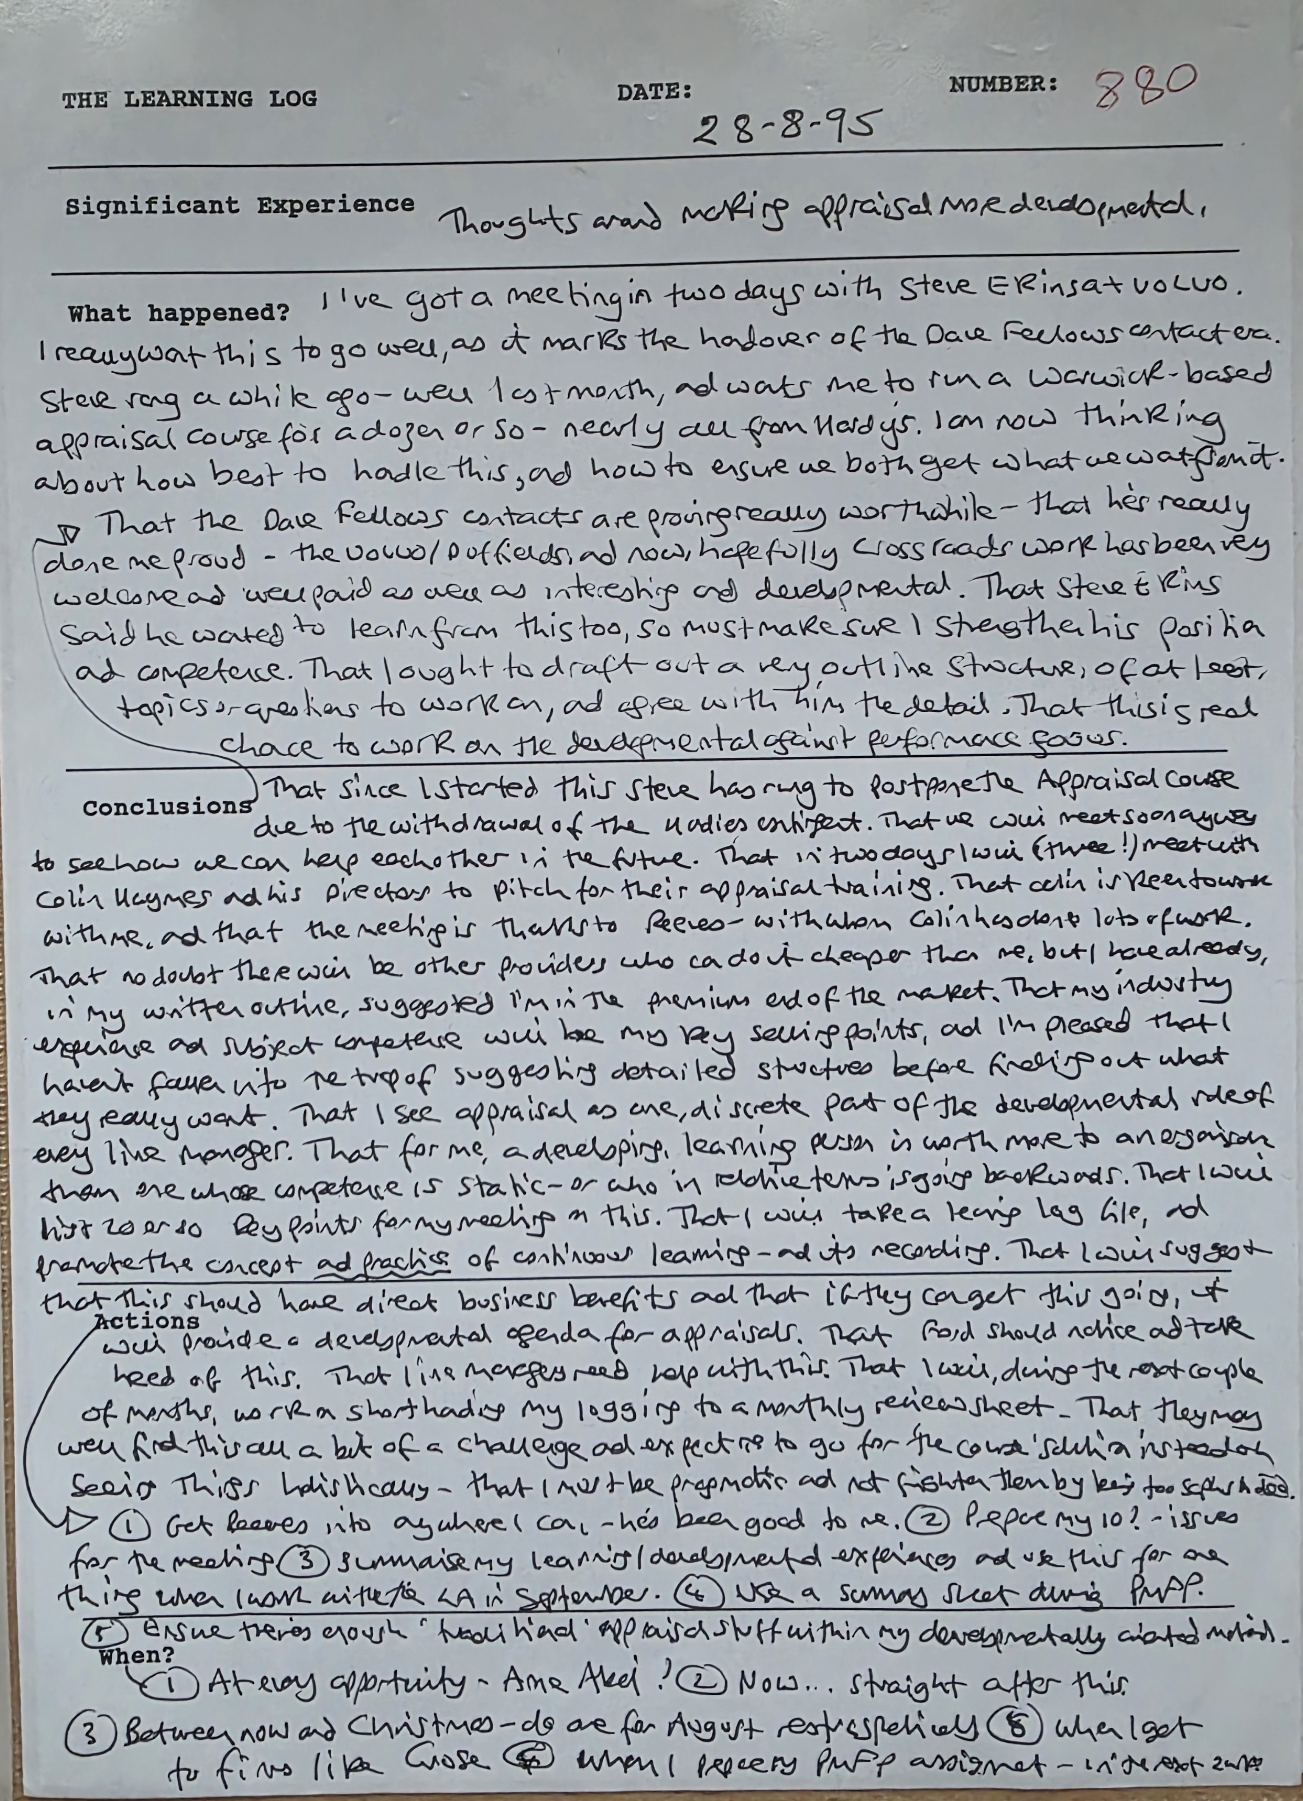 THE LEARNING LOG DATE: NUMBER: 880
28-8-95
Significant Experience Thoughts around making appraisal more developmental.
What happened? I've got a meeting in two days with Steve Ekins at Volvo.
I really want this to go well, as it marks the handover of the Dave Fellows contact era.
Steve rang a while ago - well last month, and wants me to run a Warwick-based
appraisal course for a dozen or so - nearly all from Hardy's. I am now thinking
about how best to handle this, and how to ensure we both get what we want from it.
That the Dave Fellows contacts are proving really worthwhile - that he's really
done me proud - the Volvo/Duffields, and now, hopefully Crossroads work has been very
welcome and well paid as well as interesting and developmental. That Steve Ekins
said he wanted to learn from this too, so must make sure I strengthen his position
and competence. That I ought to draft out a very outline structure, or at least,
topics or questions to work on, and agree with him the detail. That this is real
chance to work on the developmental against performance focus.
That since I started this Steve has rung to postpone the Appraisal Course
Conclusions due to the withdrawal of the Hardies contingent. That we will meet soon anyway
to see how we can help each other in the future. That in two days I will (three!) meet with
Colin Haymes and his Directors to pitch for their appraisal training. That Colin is keen to work
with me, and that the meeting is thanks to Reeves - with whom Colin has done lots of work.
That no doubt there will be other providers who can do it cheaper than me, but I have already,
in my written outline, suggested I'm in the premium end of the market. That my industry
experience and subject competence will be my key selling points, and I'm pleased that I
haven't fallen into the trap of suggesting detailed structures before finding out what
they really want. That I see appraisal as one, discrete part of the developmental role of
every line manager. That for me, a developing, learning person is worth more to an organisation
than one whose competence is static - or who in relative terms is going backwards. That I will
list 20 or so key points for my meeting on this. That I will take a learning log file, and
promote the concept and practice of continuous learning - and its recording. That I will suggest
that this should have direct business benefits and that if they can get this going, it
Actions will provide a developmental agenda for appraisals. That Ford should notice and take
heed of this. That line managers need help with this. That I will, during the next couple
of months, work on shorthanding my logging to a monthly review sheet - That they may
well find this all a bit of a challenge and expect me to go for the course 'solution' instead of
seeing things holistically - that I must be pragmatic and not frighten them by being too
① Get Reeves into anywhere I can, - he's been good to me. ② Prepare my 10? - issues
for the meeting ③ Summarise my learning/developmental experiences and use this for one
thing when I work with the LA in September. ④ Use a summary sheet during PMFP.
⑤ Ensure there's enough 'traditional' appraisal stuff within my developmentally orientated material.
When?
① At every opportunity - Akzo Nobel! ② Now... straight after this.
③ Between now and Christmas - do one for August retrospectively ⑤ When I get
to firms like Crose ④ When I prepare my PMFP assignment - in the next 2 wks